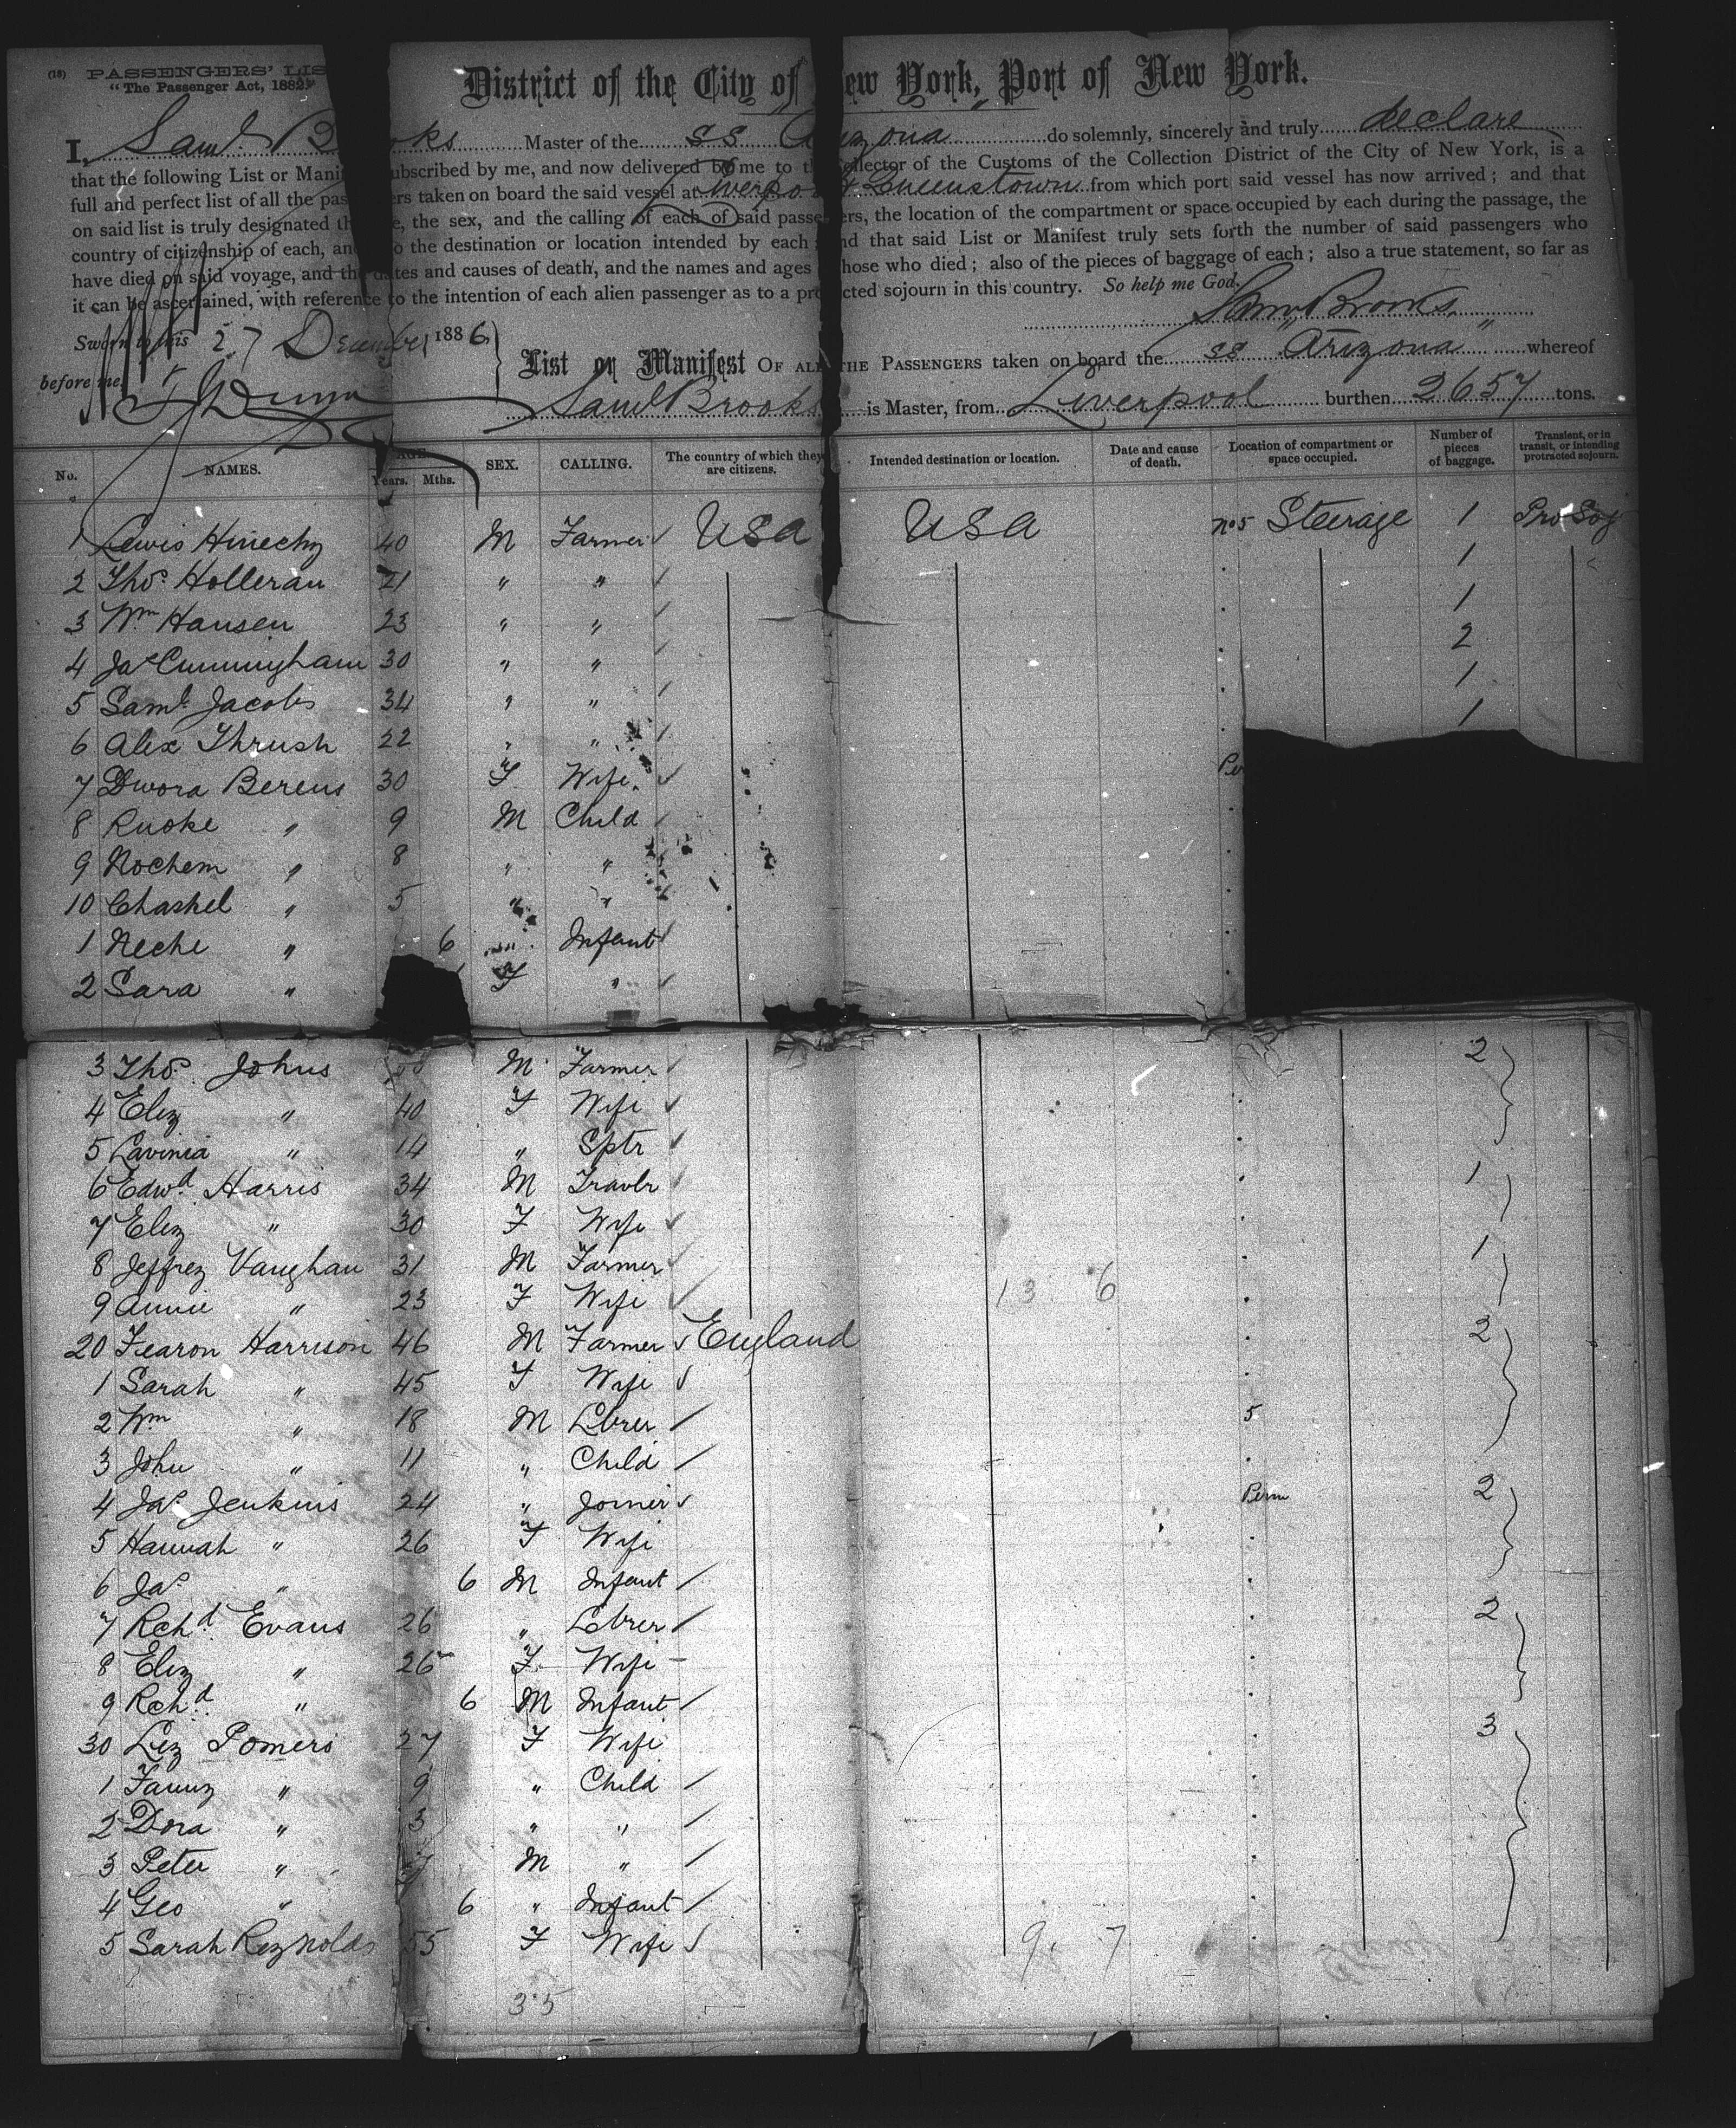 (18) PASSENGERS' LIS
"The Passenger Act, 1882."
District of the City of ew York, Port of New York.
I, Saml. B oks Master of the SS A izona do solemnly, sincerely and truly declare
that the following List or Manif ubscribed by me, and now delivered by me to th ollector of the Customs of the Collection District of the City of New York, is a
full and perfect list of all the pas ers taken on board the said vessel at Liverpo & Queenstown from which port said vessel has now arrived; and that
on said list is truly designated th e, the sex, and the calling of each of said passe ers, the location of the compartment or space occupied by each during the passage, the
country of citizenship of each, an o the destination or location intended by each nd that said List or Manifest truly sets forth the number of said passengers who
have died on said voyage, and th dates and causes of death, and the names and ages hose who died; also of the pieces of baggage of each; also a true statement, so far as
it can be ascertained, with reference to the intention of each alien passenger as to a pro cted sojourn in this country. So help me God.
Saml Brooks
Sworn to this 27 December 1886
List or Manifest OF ALL THE PASSENGERS taken on board the SS "Arizona" whereof
before me,
Saml Brooks is Master, from Liverpool burthen 2657 tons.
No. NAMES. AGE Years. Mths. SEX. CALLING. The country of which they are citizens. Intended destination or location. Date and cause of death. Location of compartment or space occupied. Number of pieces of baggage. Transient, or in transit, or intending protracted sojourn.
1 Lewis Hinechy 40 M Farmer USA USA No 5 Steerage 1 Pro Soj
2 Thos. Holleran 21 " " 1
3 Wm Hansen 23 " " 1
4 Jas Cunningham 30 " " 2
5 Saml. Jacobs 34 " " 1
6 Alex Thrush 22 " " 1
7 Dwora Berens 30 F Wife Per
8 Ruoke " 9 M Child
9 Nochem " 8 " "
10 Chaskel " 5 " "
1 Neche " 6 " Infant
2 Sara " F "
3 Thos. Johns M Farmer 2
4 Eliz " 40 F Wife
5 Lavinia " 14 " Sptr
6 Edwd. Harris 34 M Travlr 1
7 Eliz " 30 F Wife
8 Jeffrey Vaughan 31 M Farmer 1
9 Annie " 23 F Wife 13 6
20 Fearon Harrison 46 M Farmer England 2
1 Sarah " 45 F Wife
2 Wm " 18 M Lbrer 5
3 John " 11 " Child
4 Jas. Jenkins 24 " Joiner Perm 2
5 Hannah " 26 F Wife
6 Jas " 6 M Infant
7 Rchd. Evans 26 " Lbrer 2
8 Eliz " 26 F Wife
9 Rchd. " 6 M Infant
30 Liz Pomers 27 F Wife 3
1 Fanny " 9 " Child
2 Dora " 3 " "
3 Peter " M "
4 Geo " 6 " Infant
5 Sarah Reynolds 55 F Wife 9 7
35